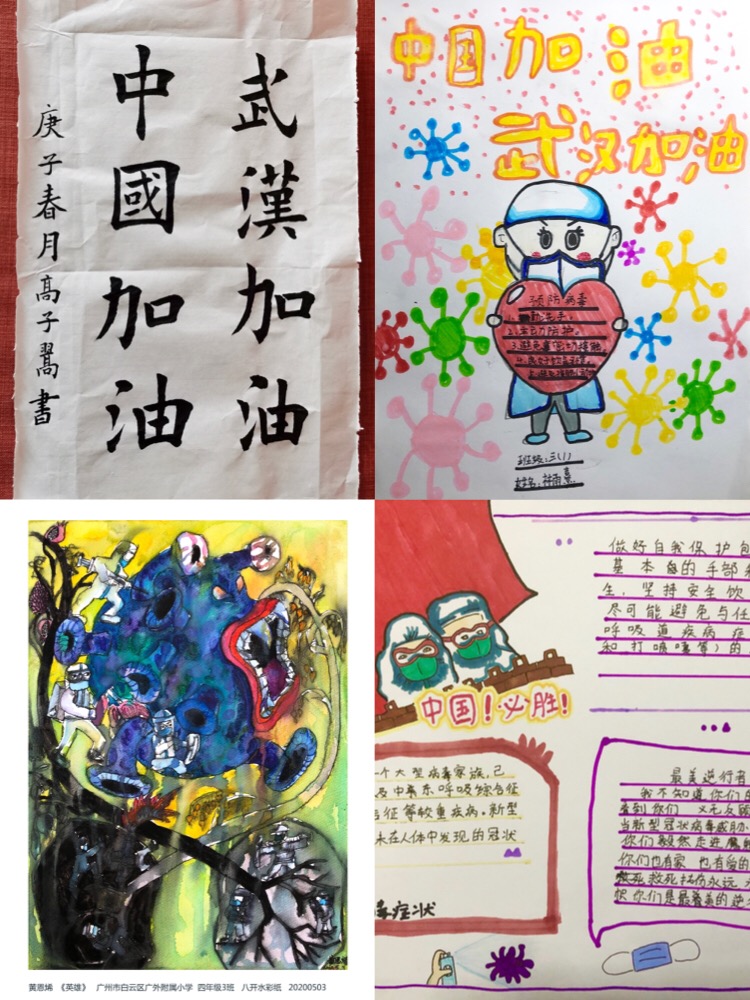 武漢加油
中國加油
庚子春月高子翯書
中国加油
武汉加油
预防病毒
班级:三(1)
黄恩烯 《英雄》 广州市白云区广外附属小学 四年级3班 八开水彩纸 20200503
做好自我保护包
基本的手部和
生,坚持安全饮
尽可能避免与任
呼吸道疾病症
和打喷嚏等)的
中国!必胜!
个大型病毒家族,已
及中东呼吸综合征
合征等较重疾病。新型
未在人体中发现的冠状
毒症状
最美逆行者
我不知道你们的
看到你们 义无反顾
当新型冠状病毒感肺
你们毅然走进
你们也有家 也有爱的
救死扶伤永远
你们是最美的逆